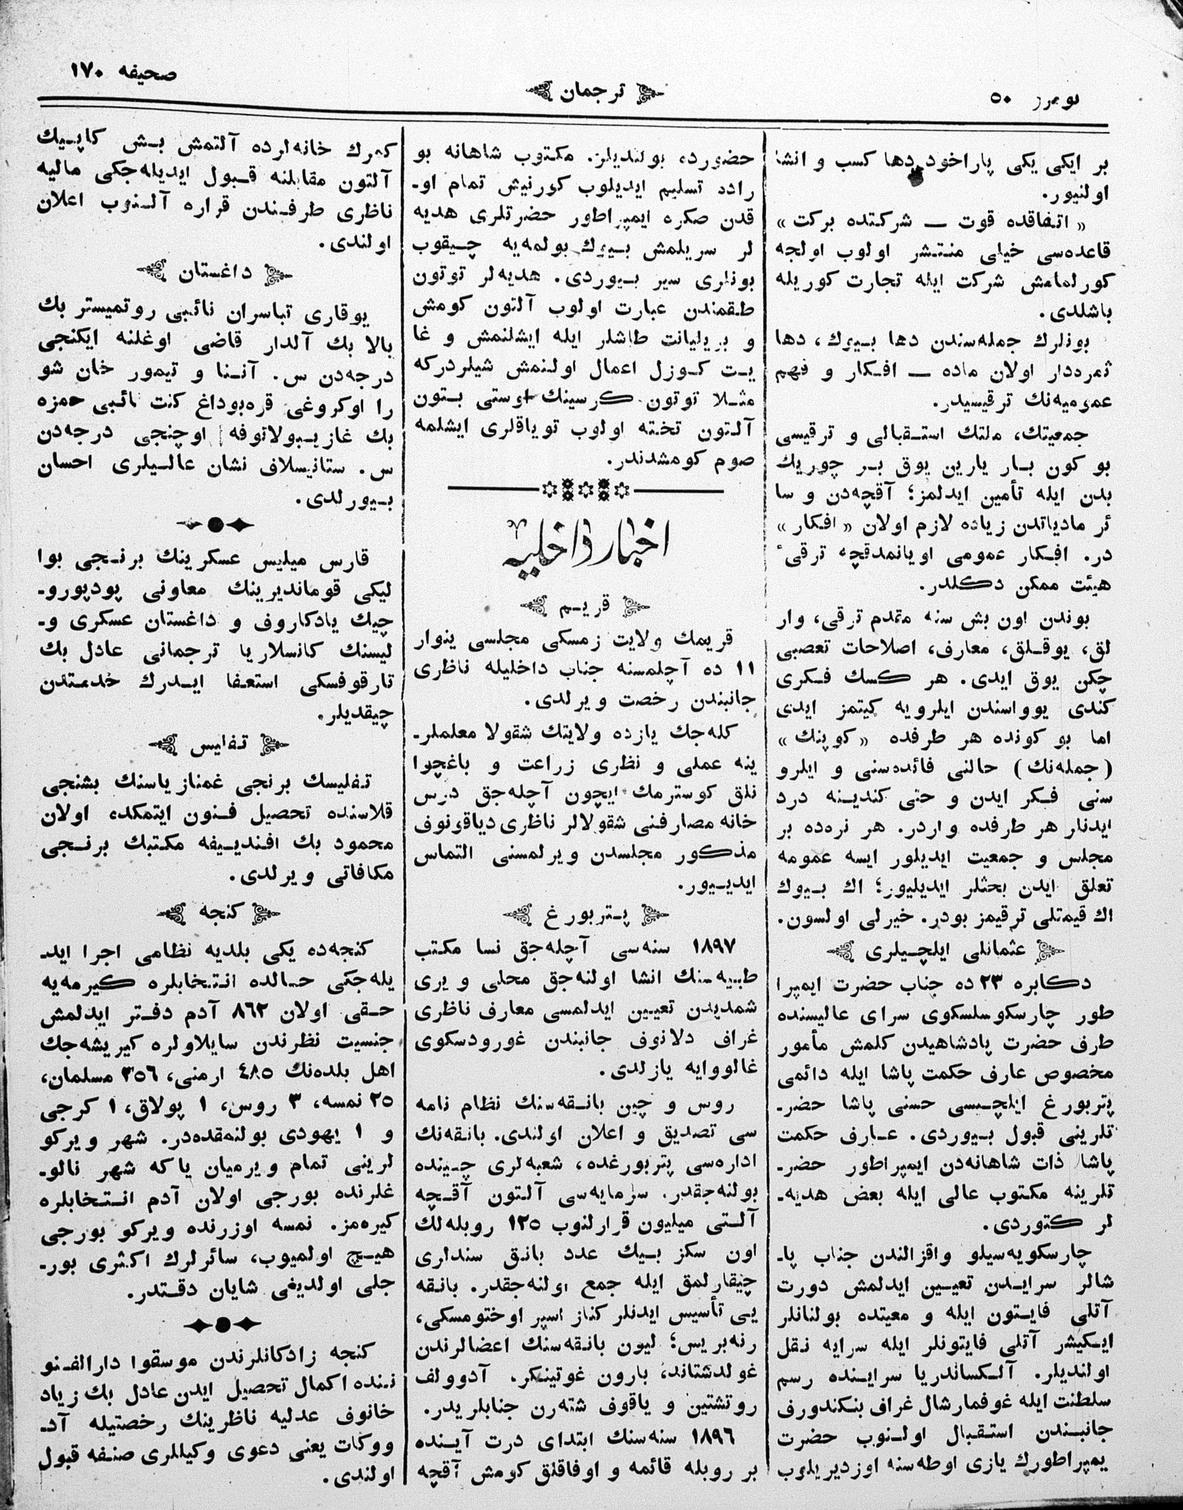 نومرو ٥٠
ترجمان
صحیفه ١٧٠
بر ایکی یکی پاراخود دها کسب و انشا
اولنیور.
« اتفاقده قوت — شرکتده برکت »
قاعده‌سی خیلی منتشر اولوب اولجه
کورلمامش شرکت ایله تجارت کوریله
باشلدی.
بونلرك جمله‌سندن دها بیوك، دها
ثمره‌دار اولان ماده — افکار و فهم
عمومیه‌نك ترقیسیدر.
جمعیتك، ملتك استقبالی و ترقیسی
بو کون بار یارین یوق بر چوریك
بدن ایله تأمین ایدلمز؛ آقچه‌دن و سا
ئر مادیاتدن زیاده لازم اولان « افکار »
در. افکار عمومی اویانمدقچه ترقیٔ
هیئت ممکن دکلدر.
بوندن اون بش سنه مقدم ترقی، وار
لق، یوقلق، معارف، اصلاحات تعصبی
چکن یوق ایدی. هر کسك فکری
کندی یوواسندن ایلرویه کیتمز ایدی
اما بو کونده هر طرفده « کوپنك »
(جمله‌نك) حالنی فائده‌سنی و ایلرو
سنی فکر ایدن و حتی کندینه درد
ایدنلر هر طرفده واردر. هر نره‌ده بر
مجلس و جمعیت ایدیلور ایسه عمومه
تعلق ایدن بحثلر ایدیلیور؛ اك بیوك
اك قیمتلی ترقیمز بودر. خیرلی اولسون.
عثمانلی ایلچیلری
دکابره ٢٣ ده جناب حضرت ایمپرا
طور چارسکوسلسکوی سرای عالیسنده
طرف حضرت پادشاهیدن کلمش مأمور
مخصوص عارف حکمت پاشا ایله دائمی
پتربورغ ایلچیسی حسنی پاشا حضر-
تلرینی قبول بیوردی. عارف حکمت
پاشا ذات شاهانه‌دن ایمپراطور حضر-
تلرینه مکتوب عالی ایله بعض هدیه-
لر کتوردی.
چارسکویه‌سیلو واقزالندن جناب پا-
شالر سرایدن تعیین ایدلمش دورت
آتلی فایتون ایله و معیتده بولنانلر
ایکیشر آتلی فایتونلر ایله سرایه نقل
اولندیلر. آلکساندریا سراینده رسم
سلطنت ایله غوفمارشال غراف بنکندورف
جانبندن استقبال اولنوب حضرت
یمپراطورك یازی اوطه‌سنه اوزدیریلوب
حضورده بولندیلر. مکتوب شاهانه بو
راده تسلیم ایدیلوب کورنیش تمام او-
قدن صکره ایمپراطور حضرتلری هدیه
لر سریلمش بیوك بولمه‌یه چیقوب
بونلری سیر بیوردی. هدیه‌لر توتون
طقمندن عبارت اولوب آلتون کومش
و بریلیانت طاشلر ایله ایشلنمش و غا
یت کوزل اعمال اولنمش شیلردرکه
مثلا توتون کرسینك اوستی بتون
آلتون تخته اولوب تویاقلری ایشلمه
صوم کومشدندر.
اخبار داخلیه
قریم
قریمك ولایت زمسکی مجلسی ینوار
١١ ده آچلمسنه جناب داخلیله ناظری
جانبندن رخصت ویرلدی.
کله‌جك یازده ولایتك شقولا معلملر-
ینه عملی و نظری زراعت و باغچوا
نلق کوسترمك ایچون آچله‌جق درس
خانه مصارفنی شقولالر ناظری دیاقونوف
مذکور مجلسدن ویرلمسنی التماس
ایدییور.
پتربورغ
١٨٩٧ سنه‌سی آچله‌جق نسا مکتب
طبیه‌سنك انشا اولنه‌جق محلی و یری
شمدیدن تعیین ایدلمسی معارف ناظری
غراف دلانوف جانبندن غورودسکوی
غالووایه یازلدی.
روس و چین بانقه‌سنك نظام نامه
سی تصدیق و اعلان اولندی. بانقه‌نك
اداره‌سی پتربورغده، شعبه‌لری چینده
بولنه‌جقدر. سرمایه‌سی آلتون آقچه
آلتی میلیون قرارلنوب ١٢٥ روبله‌لك
اون سکز بیك عدد بانق سندلری
چیقارلمق ایله جمع اولنه‌جقدر. بانقه
یی تأسیس ایدنلر کناز اسپر اوختومسکی،
رنه‌بریس؛ لیون بانقه‌سنك اعضالرندن
غولدشتاند، بارون غوتینکر. آدوولف
روتشتین و یاقوف شته‌رن جنابلریدر.
١٨٩٦ سنه‌سنك ابتدای درت آینده
بر روبله قائمه و اوفاقلق کومش آقچه
کمرك خانه‌لرده آلتمش بش کاپیك
آلتون مقابلنه قبول ایدیله‌جکی مالیه
ناظری طرفندن قراره آلنوب اعلان
اولندی.
داغستان
یوقاری تباسران نائبی روتمیستر بك
بالا بك آلدار قاضی اوغلنه ایکنجی
درجه‌دن س. آننا و تیمور خان شو
را اوکروغی قره‌بوداغ کنت نائبی حمزه
بك غازیبولاتوفه اوچنجی درجه‌دن
س. ستانیسلاف نشان عالیلری احسان
بیورلدی.
قارس میلیس عسکرینك برنجی بوا
لیکی قوماندیرینك معاونی پودپورو-
چیك یادکاروف و داغستان عسکری و-
لیسنك کانسلاریا ترجمانی عادل بك
تارقوفسکی استعفا ایدرك خدمتدن
چیقدیلر.
تفلیس
تفلیسك برنجی غمنازیاسنك بشنجی
قلاسنده تحصیل فنون ایتمکده اولان
محمود بك افندییفه مکتبك برنجی
مکافاتی ویرلدی.
کنجه
کنجه‌ده یکی بلدیه نظامی اجرا اید-
یله‌جکی حالده انتخابلره کیرمه‌یه
حقی اولان ٨٦٢ آدم دفتر ایدلمش
جنسیت نظرندن سایلاولره کیریشه‌جك
اهل بلده‌نك ٤٨٥ ارمنی، ٣٥٦ مسلمان،
٢٥ نمسه، ٣ روس، ١ پولاق، ١ کرجی
و ١ یهودی بولنمقده‌در. شهر ویرکو
لرینی تمام ویرمیان یاکه شهر نالو-
غلرنده بورجی اولان آدم انتخابلره
کیره‌مز. نمسه اوزرنده ویرکو بورجی
هیچ اولمیوب، سائرلرك اکثری بور-
جلی اولدیغی شایان دقتدر.
کنجه زادکانلرندن موسقوا دارالفنو
ننده اکمال تحصیل ایدن عادل بك زیاد
خانوف عدلیه ناظرینك رخصتیله آد-
ووکات یعنی دعوی وکیللری صنفه قبول
اولندی.